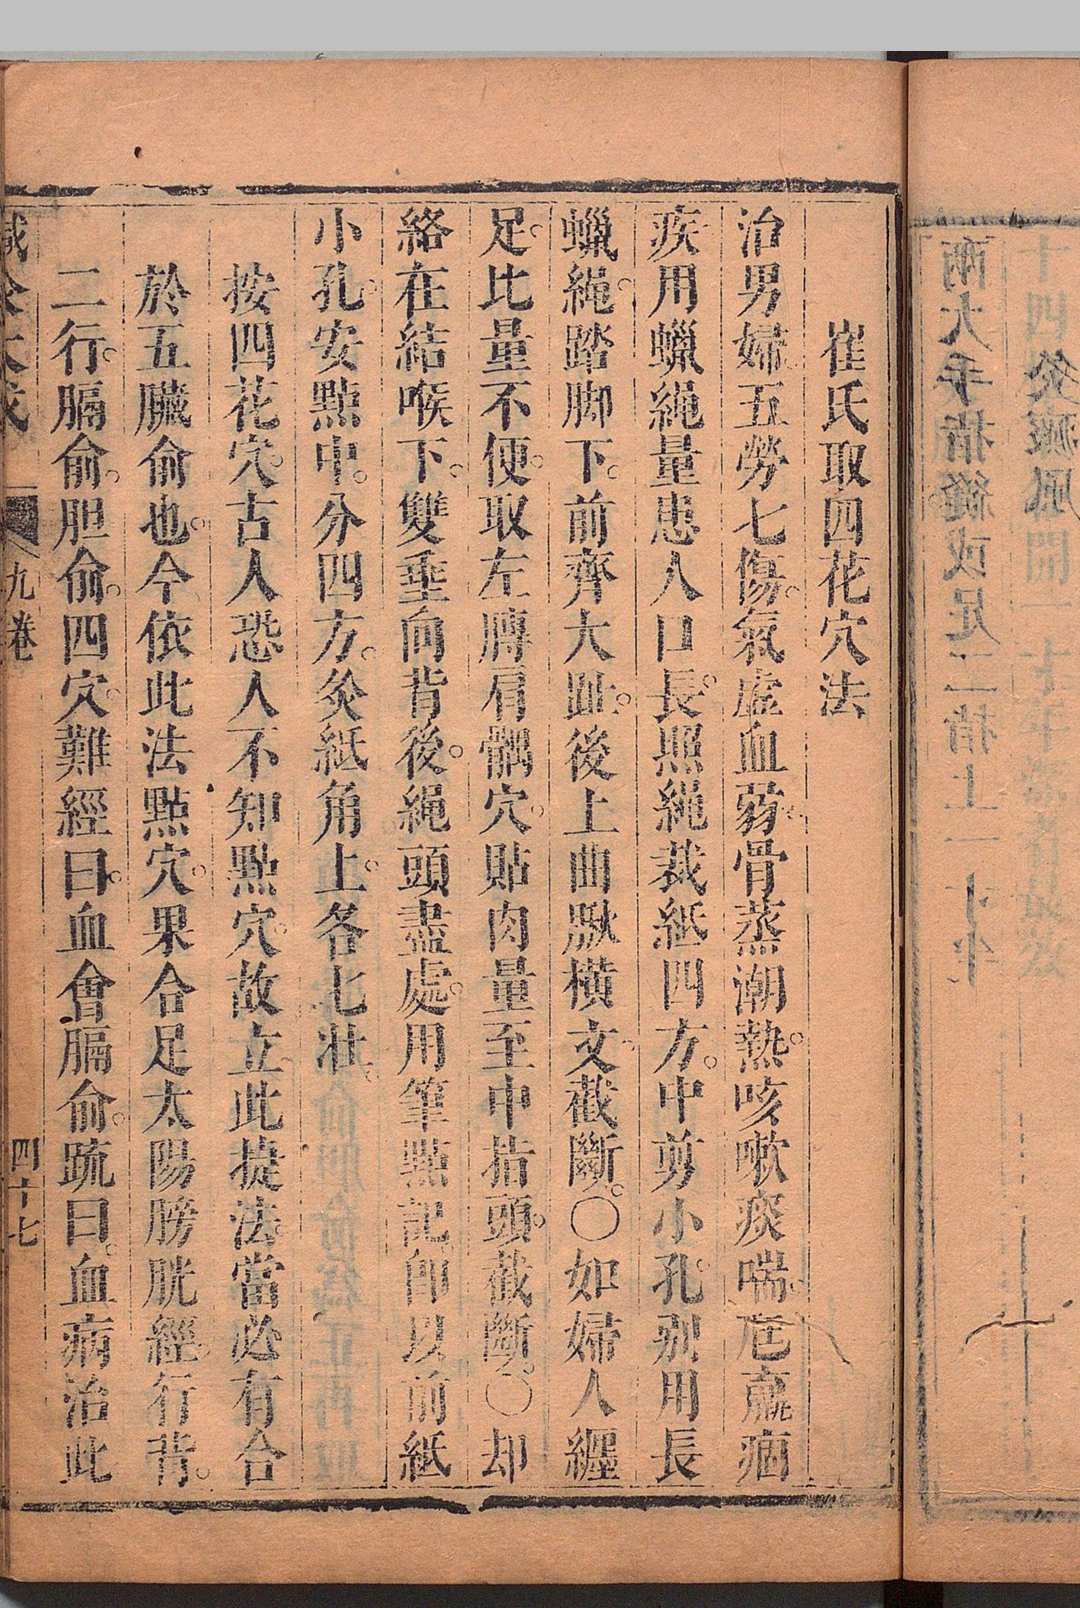 崔氏取四花穴法
治男婦五勞七傷。氣虛血弱。骨蒸潮熱。咳嗽痰喘。尫羸痼
疾用蠟繩量患人口長。照繩裁紙四方。中剪小孔。别用長
蠟繩。踏脚下。前齊大趾。後上曲䐐橫文。截斷。〇如婦人纏
足。比量不便。取左膊肩髃穴。貼肉量至中指頭。截斷。〇却
絡在結喉下。雙垂向背後。繩頭盡處。用筆點記。卽以前紙
小孔。安點中。分四方。灸紙角上。各七壯。
按四花穴。古人恐人不知點穴。故立此捷法。當必有合
於五臟俞也。今依此法點穴。果合足太陽膀胱經。行背。
二行。膈俞。胆俞。四穴。難經曰。血會膈俞。疏曰。血病治此
九卷
四十七